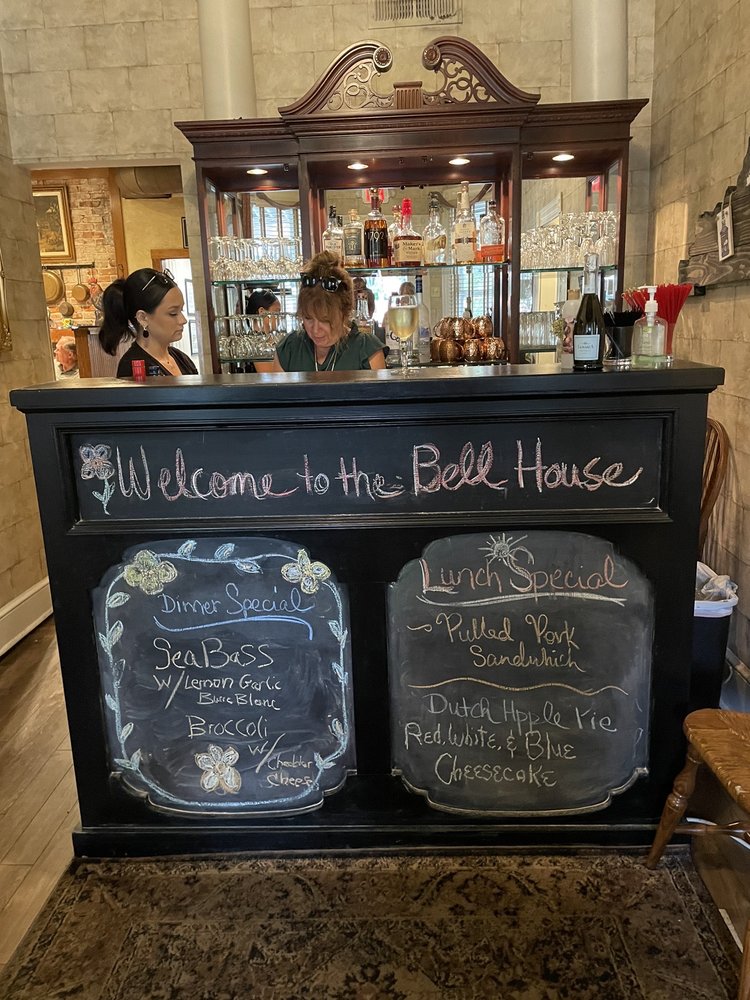 1792
Maker's Mark
Welcome to the Bell House
Dinner Special
Sea Bass
w/ Lemon Garlic
Burre Blanc
Broccoli
w/ Cheddar
Cheese
Lunch Special
~ Pulled Pork
Sandwhich
Dutch Apple Pie
Red, White, & Blue
Cheesecake